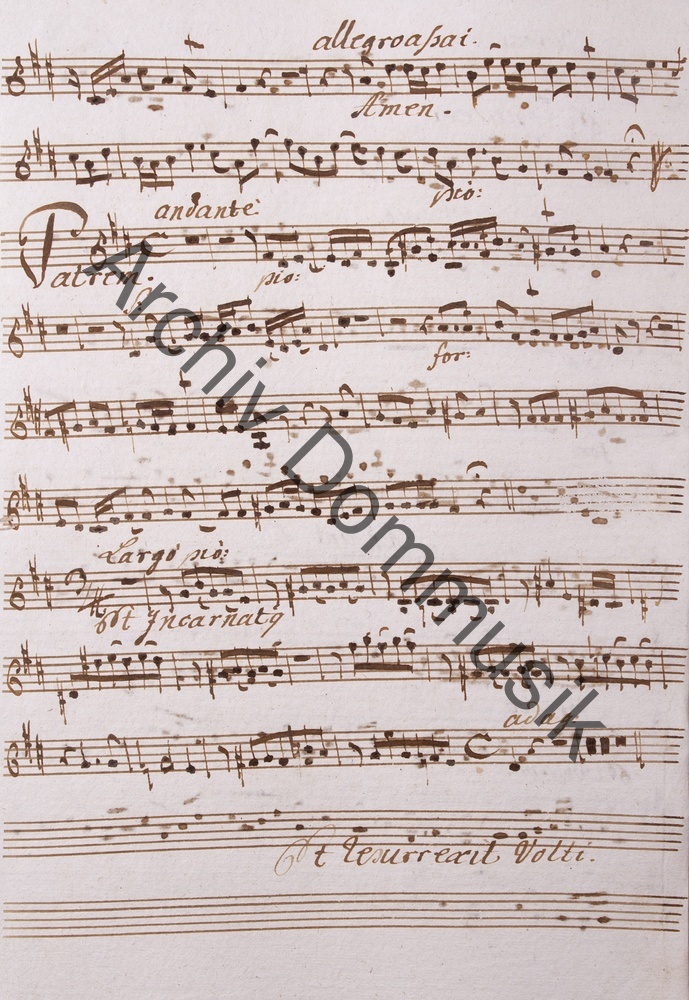 allegroaſsai.
Amen.
pio:
andante
Patrem.
pio:
for:
Largo pio:
Et Incarnatq
adag
Et Resurrexit Volti.
Archiv Dommusik